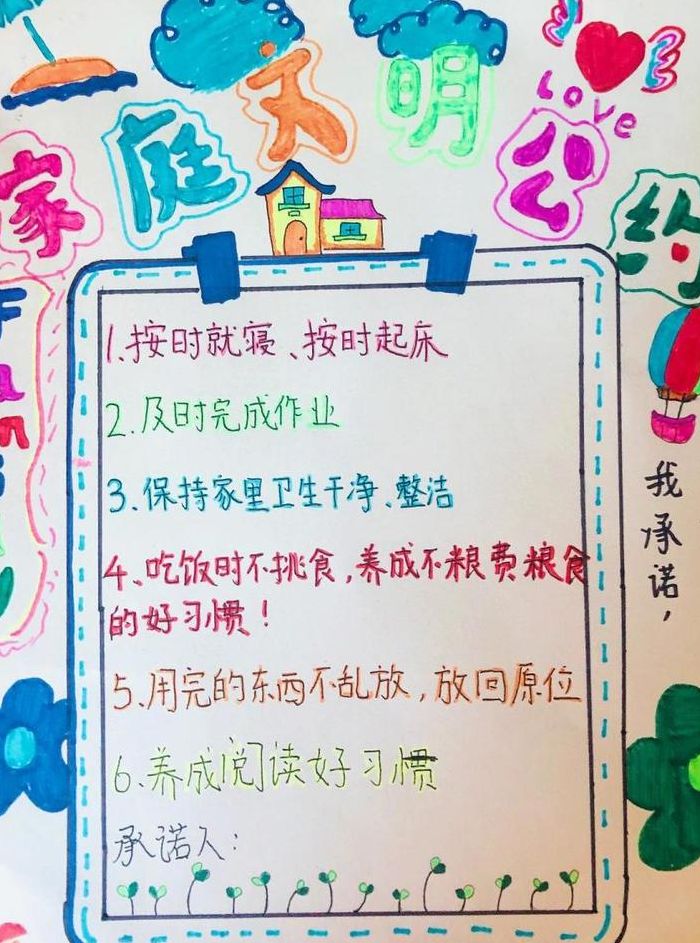 家庭文明公约
Love
1.按时就寝、按时起床
2.及时完成作业
3.保持家里卫生干净、整洁
4、吃饭时不挑食,养成不粮费粮食
的好习惯!
5、用完的东西不乱放,放回原位
6.养成阅读好习惯
承诺人:
我承诺,